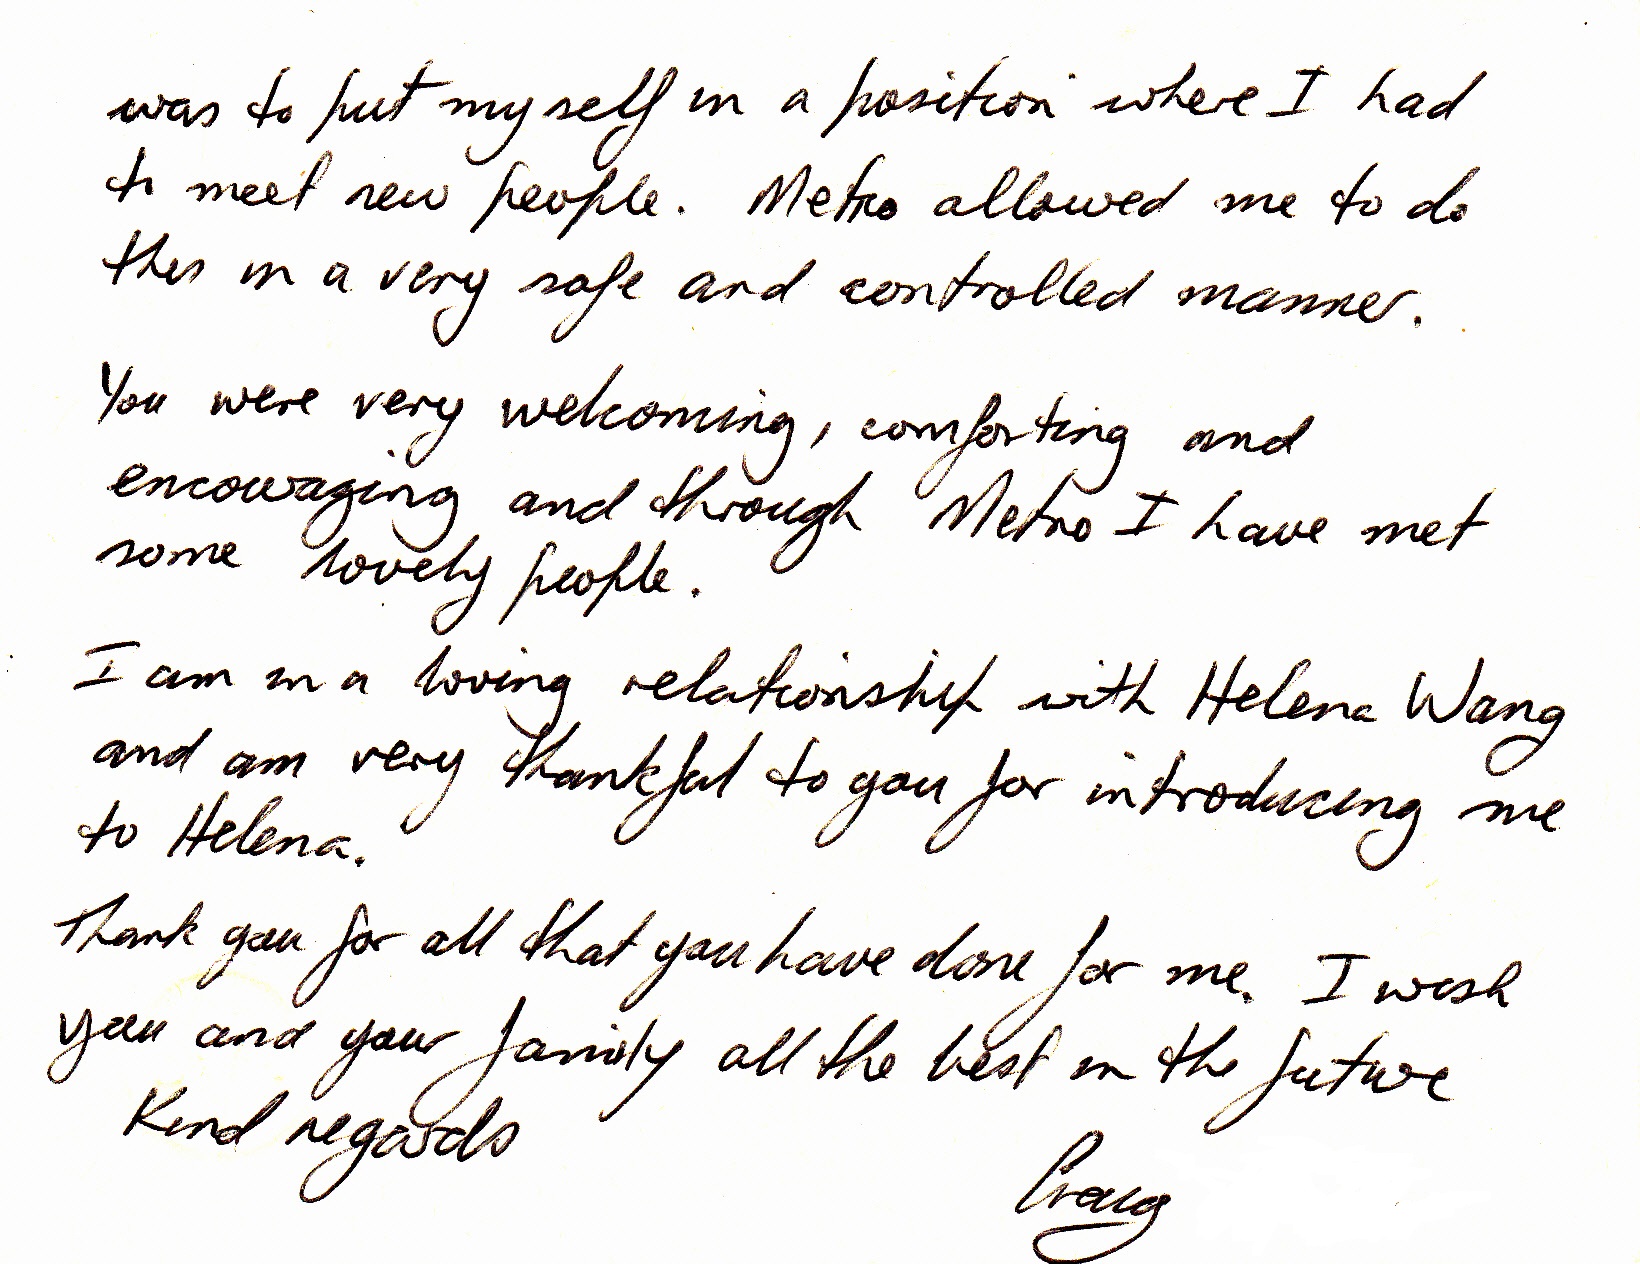 was to put myself in a position where I had
to meet new people. Metro allowed me to do
this in a very safe and controlled manner.
You were very welcoming, comforting and
encouraging and through Metro I have met
some lovely people.
I am in a loving relationship with Helena Wang
and am very thankful to you for introducing me
to Helena.
Thank you for all that you have done for me. I wish
you and your family all the best in the future
Kind regards
Craig